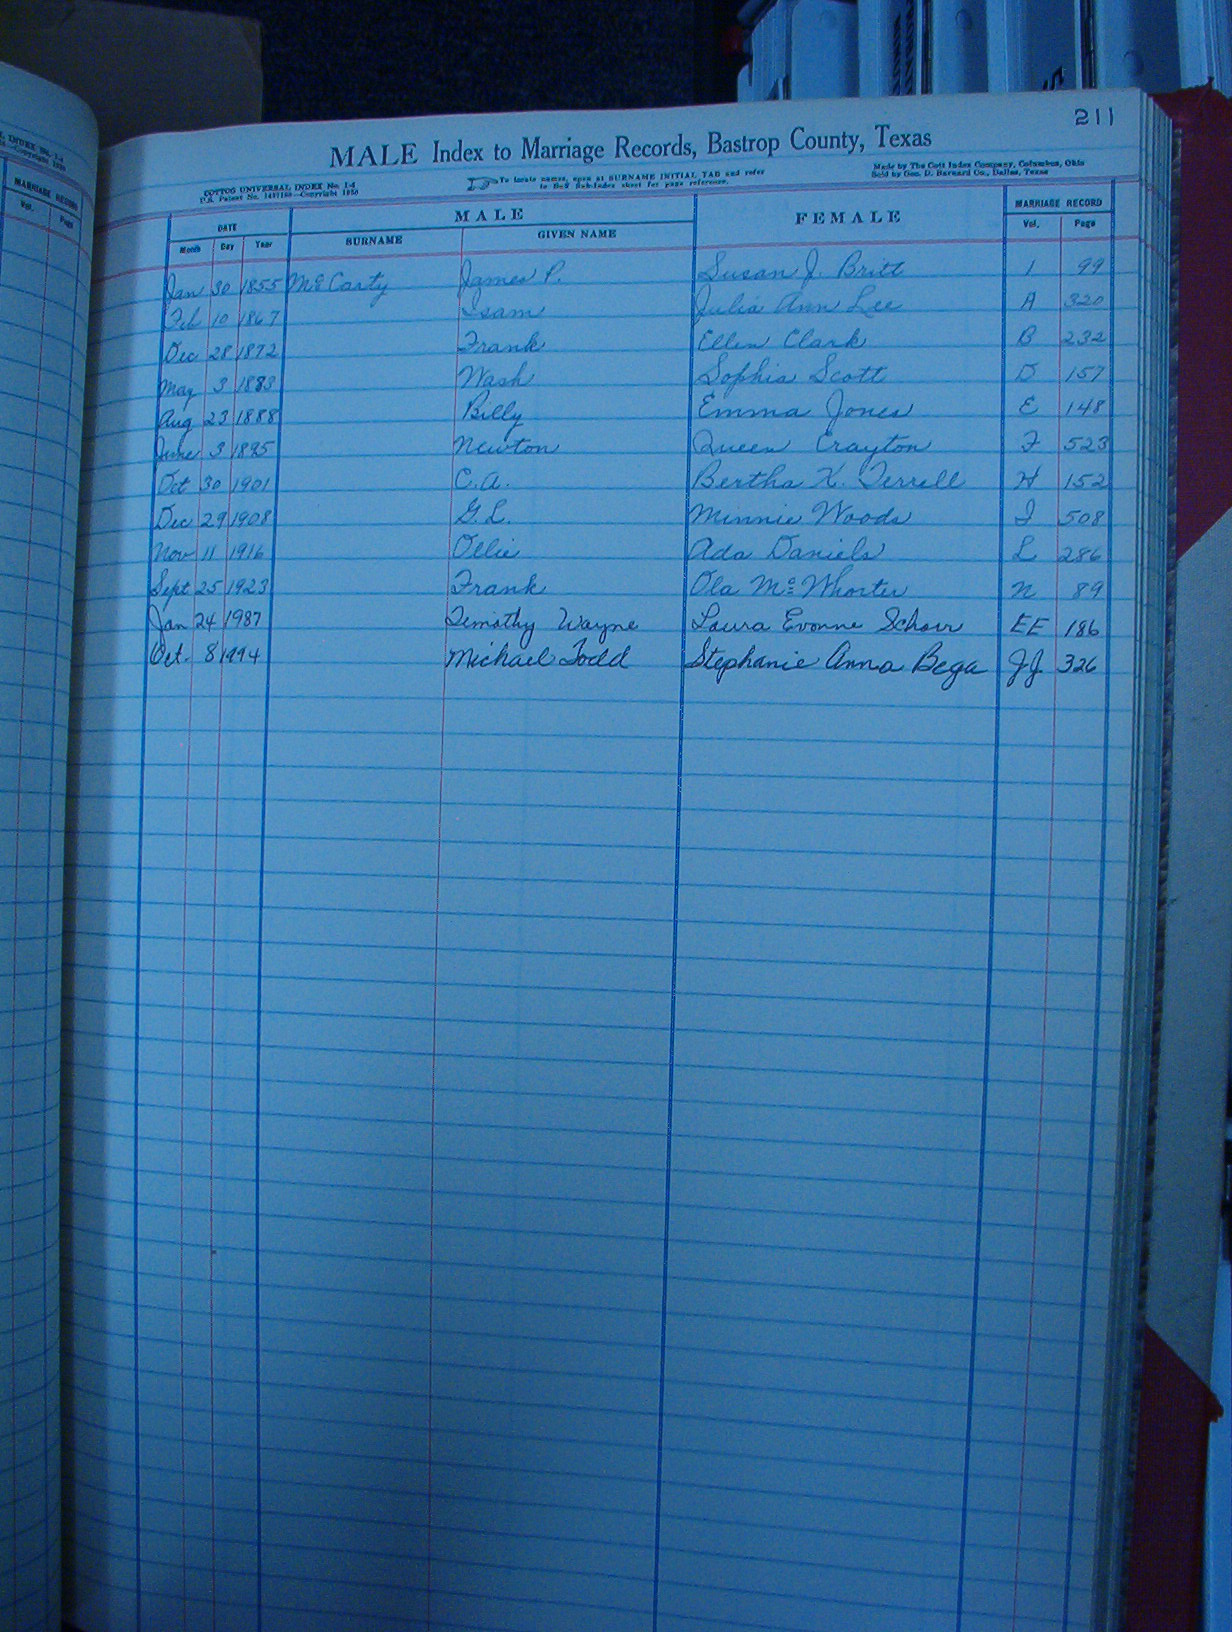 211
MALE Index to Marriage Records, Bastrop County, Texas
COTTOS UNIVERSAL INDEX No. I-4
U.S. Patent No. Copyright
To locate names, open at SURNAME INITIAL TAB and refer
to Sub-Index sheet for page reference.
Made by The Cott Index Company, Columbus, Ohio
Sold by Geo. D. Barnard Co., Dallas, Texas
DATE MALE FEMALE MARRIAGE RECORD
Month Day Year SURNAME GIVEN NAME Vol. Page
Jan 30 1855 McCarty James P. Susan J. Britt 1 99
Feb 10 1867 Isam Julia Ann Lee A 320
Dec 28 1872 Frank Ellen Clark B 232
May 3 1883 Wash Sophia Scott D 157
Aug 23 1888 Billy Emma Jones E 148
June 3 1895 Newton Queen Crayton F 523
Oct 30 1901 C.A. Bertha K. Terrell H 152
Dec 29 1908 G.L. Minnie Woods I 508
Nov 11 1916 Ollie Ada Daniels L 286
Sept 25 1923 Frank Ola McWhorter N 89
Jan 24 1987 Timothy Wayne Laura Evonne Schorr EE 186
Oct. 8 1994 Michael Todd Stephanie Anna Bega JJ 326
MARRIAGE RECORD
Vol. Page